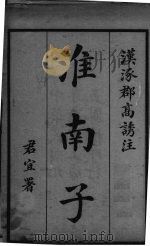 漢涿郡高誘注
淮南子
君宜署